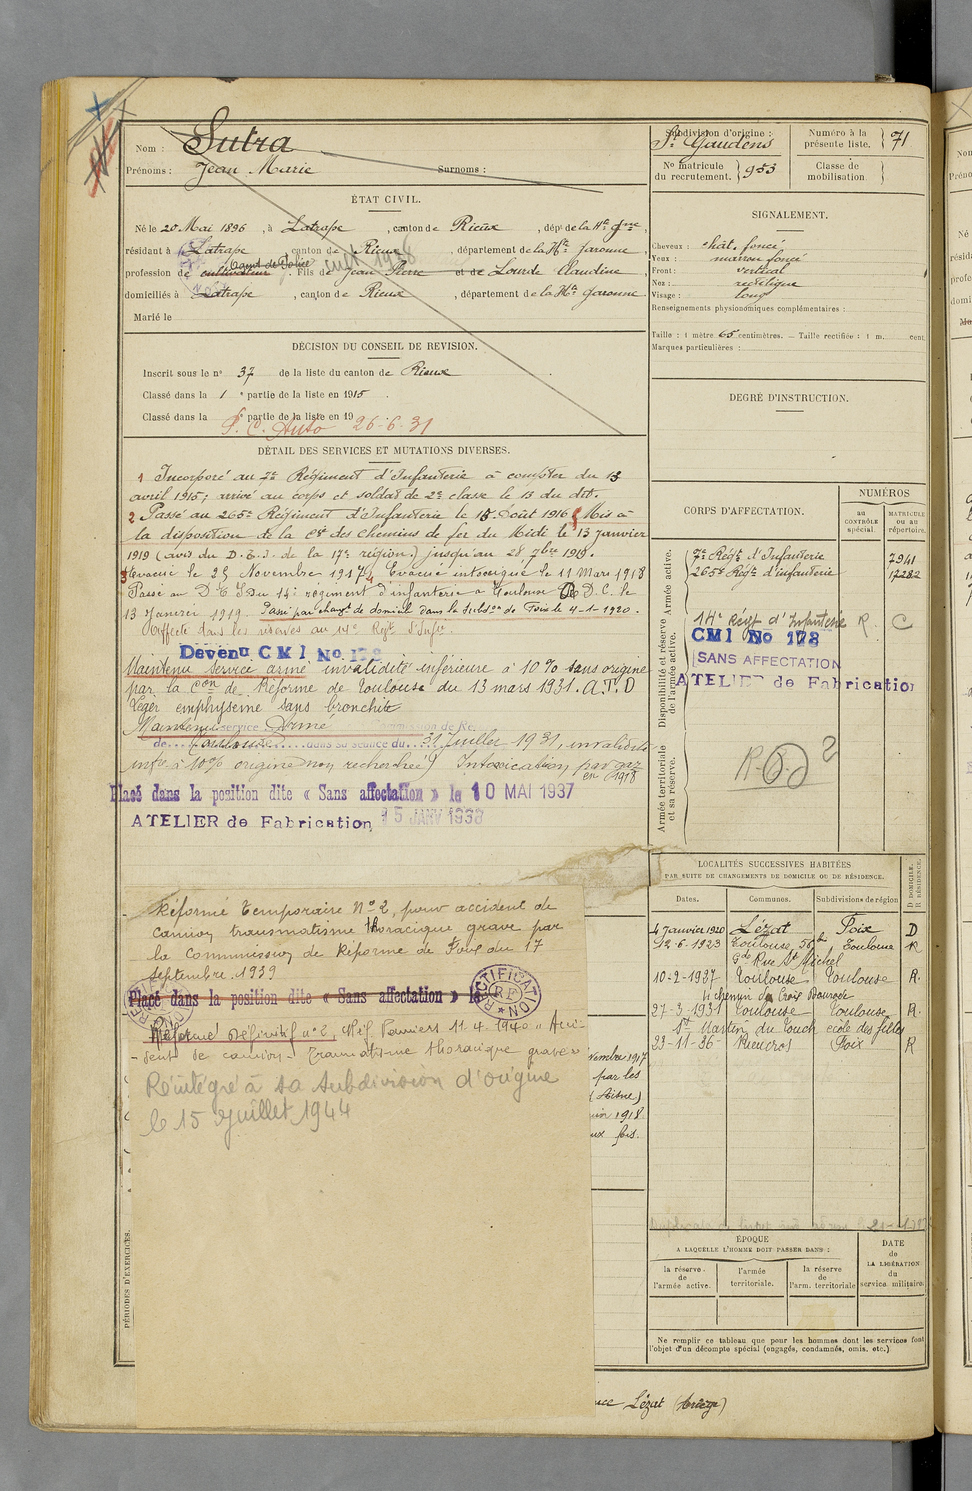 Nom : Sutra
Prénoms : Jean Marie Surnoms :
ÉTAT CIVIL.
Né le 20 Mai 1896, à Latrape, canton de Rieux, dépt de la Hte Gne,
résidant à Latrape, canton de Rieux, département de la Hte Garonne,
profession de cultivateur Cant de Police, fils de Jean Pierre et de Lourde Claudine,
domiciliés à Latrape, canton de Rieux, département de la Hte Garonne
Marié le
DÉCISION DU CONSEIL DE REVISION.
Inscrit sous le no 37 de la liste du canton de Rieux
Classé dans la 1e partie de la liste en 1915
Classé dans la e partie de la liste en 19
S. C. Auto 26-6-31
DÉTAIL DES SERVICES ET MUTATIONS DIVERSES.
1 Incorporé au 7e Régiment d'Infanterie à compter du 13
avril 1915; arrivé au corps et soldat de 2e classe le 13 du dit.
2 Passé au 265e Régiment d'Infanterie le 15 Août 1916 Mis à
la disposition de la Cie des Chemins de fer du Midi le 13 Janvier
1919 (avis du D.E.S. de la 17e région) jusqu'au 28 9bre 1919.
3 Evacué le 25 Novembre 1917 4 Evacué intoxiqué le 11 Mars 1918
Passé au D. C. S Du 14e régiment d'infanterie à Toulouse D. C. le
13 Janvier 1919. Passé par changt de domicile dans la Subdon de Foix le 4-1-1920.
Affecté dans les réserves au 14e Regt d'Infie.
Devenu CMI No 178
Maintenu service armé invalidité inférieure à 10% sans origine
par la Con de Réforme de Toulouse du 13 mars 1931. A.T.D
Léger emphysème sans bronchite
Maintenu service Armé Commission de Ré
de Toulouse dans sa séance du 31 Juillet 1931, invalidité
infre à 10% origine non recherchée) Intoxication par gaz
en 1918
Placé dans la position dite « Sans affectation » le 10 MAI 1937
ATELIER de Fabrication 15 JANV 1938
Réformé Temporaire No 2, pour accident de
camion, traumatisme thoracique grave par
la Commission de Réforme de Foix du 17
septembre 1939
Placé dans la position dite « Sans affectation » le
RECTIFICATION RF
RECTIFICATION
Réformé Définitif no 2, Réf Pamiers 11-4-1940 « Acci-
dent de camion - Traumatisme thoracique grave »
Réintégré à sa subdivision d'origine
le 15 Juillet 1944
Novembre 1917
par les
(Aisne)
juin 1918
fois.
PÉRIODES D'EXERCICES.
Lézat (Ariège)
Subdivision d'origine : St Gaudens
Numéro à la présente liste. 71
No matricule du recrutement. 953
Classe de mobilisation.
SIGNALEMENT.
Cheveux : chât. foncé
Yeux : marron foncé
Front : vertical
Nez : rectiligne
Visage : long
Renseignements physionomiques complémentaires :
Taille : 1 mètre 65 centimètres. — Taille rectifiée : 1 m. cent.
Marques particulières :
DEGRÉ D'INSTRUCTION.
CORPS D'AFFECTATION.
NUMÉROS
au CONTRÔLE spécial
MATRICULE ou au répertoire.
Armée active.
7e Régt d'Infanterie 7941
265e Régt d'infanterie 12282
Disponibilité et réserve de l'armée active.
14e Régt d'Infanterie R. C
CMI No 178
SANS AFFECTATION
ATELIER de Fabrication
Armée territoriale et sa réserve.
LOCALITÉS SUCCESSIVES HABITÉES
PAR SUITE DE CHANGEMENTS DE DOMICILE OU DE RÉSIDENCE.
D DOMICILE. R RÉSIDENCE.
Dates. Communes. Subdivisions de région
4 Janvier 1920 Lézat Foix D
12-6-1923 Toulouse, 56 bis Toulouse R
Gde Rue St Michel
10-2-1927 Toulouse Toulouse R.
chemin de Croix Bourade
27-3-1931 Toulouse Toulouse R.
St Martin du Touch école des filles
23-11-36 Rieucros Foix R
ÉPOQUE
A LAQUELLE L'HOMME DOIT PASSER DANS :
la réserve de l'armée active.
l'armée territoriale.
la réserve de l'arm. territoriale
DATE de LA LIBÉRATION du service militaire
Ne remplir ce tableau que pour les hommes dont les services font
l'objet d'un décompte spécial (engagés, condamnés, omis, etc.)